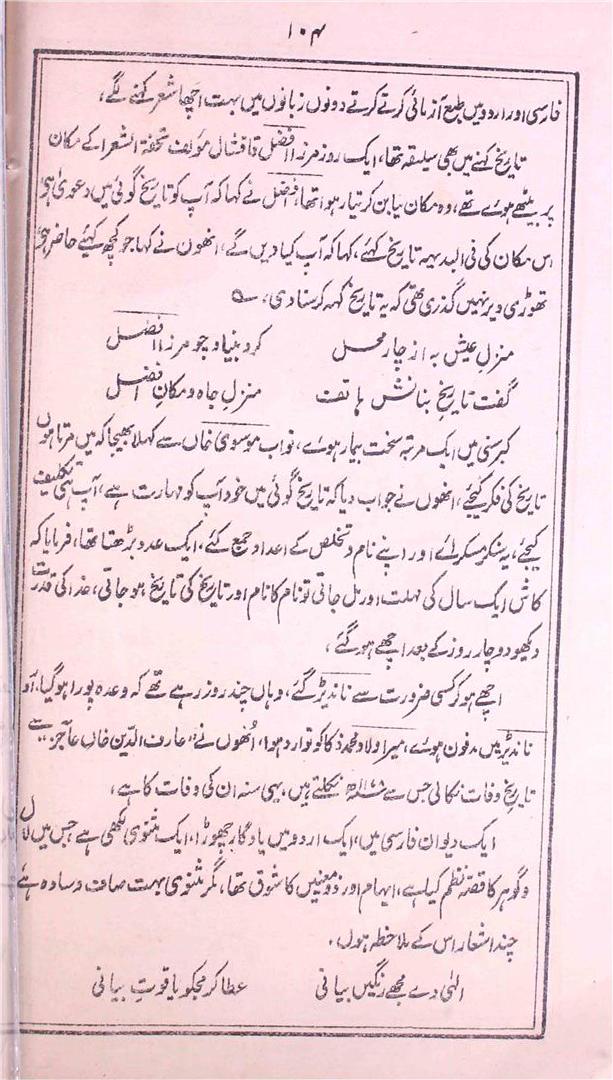 ۱۰۴
فارسی اور اردو میں طبع آزمائی کرتے کرتے دونوں زبانوں میں بہت اچھا شعر کہنے لگے،
تاریخ کہنے میں بھی سلیقہ تھا، ایک روز مرزا افضل قاقشال مولف تحفۃ الشعرا کے مکان
پر بیٹھے ہوے تھے، وہ مکان نیا بن کر تیار ہوا تھا، افضل نے کہا کہ آپ کو تاریخ گوئی میں دعویٰ ہی
اس مکان کی فی البدیہہ تاریخ کہئے، کہا کہ آپ کیا دیں گے، انھوں نے کہا جو کچھ کہئے حاضر ہی
تھوڑی دیر نہیں گذری تھی کہ یہ تاریخ کہہ کر سنا دی، ؎
منزلِ عیش بہ از چار محل کرد بنیاد چو مرزا افضل
گفت تاریخِ بنانش ہاتف منزلِ جاہ و مکانِ افضل
کبر سنی میں ایک مرتبہ سخت بیمار ہوے، نواب موسوی خاں سے کہلا بھیجا کہ میں مرتا ہوں
تاریخ کی فکر کیجئے، انھوں نے جواب دیا کہ تاریخ گوئی میں خود آپ کو مہارت ہے، آپ ہی تکلیف
کیجئے، یہ سنکر مسکراے اور اپنے نام و تخلص کے اعداد جمع کئے، ایک عدد بڑھتا تھا، فرمایا کہ
کاش ایک سال کی مہلت اور مل جاتی تو نام کا نام اور تاریخ کی تاریخ ہو جاتی، خدا کی قدرت
دیکھو دو چار روز کے بعد اچھے ہو گئے،
اچھے ہو کر کسی ضرورت سے ناندیڑ گئے، وہاں چند روز رہے تھے کہ وعدہ پورا ہو گیا، اور
ناندیڑ میں مدفون ہوے، میر اولاد محمد ذکا کو توارد ہوا، اُنھوں نے "عارف الدّین خاں عاجز" سے
تاریخ وفات نکالی جس سے ۱۱۷۸ھ نکلتے ہیں، یہی سنہ ان کی وفات کا ہے،
ایک دیوان فارسی میں، ایک اردو میں یادگار چھوڑا، ایک مثنوی لکھی ہے جس میں لال
و گوہر کا قصّہ نظم کیا ہے، ایہام اور ذو معنیین کا شوق تھا، مگر مثنوی بہت صاف و سادہ ہے
چند اشعار اس کے ملاحظہ ہوں،
الٰہی دے مجھے رنگیں بیانی عطا کر مجکو یاقوتِ بیانی